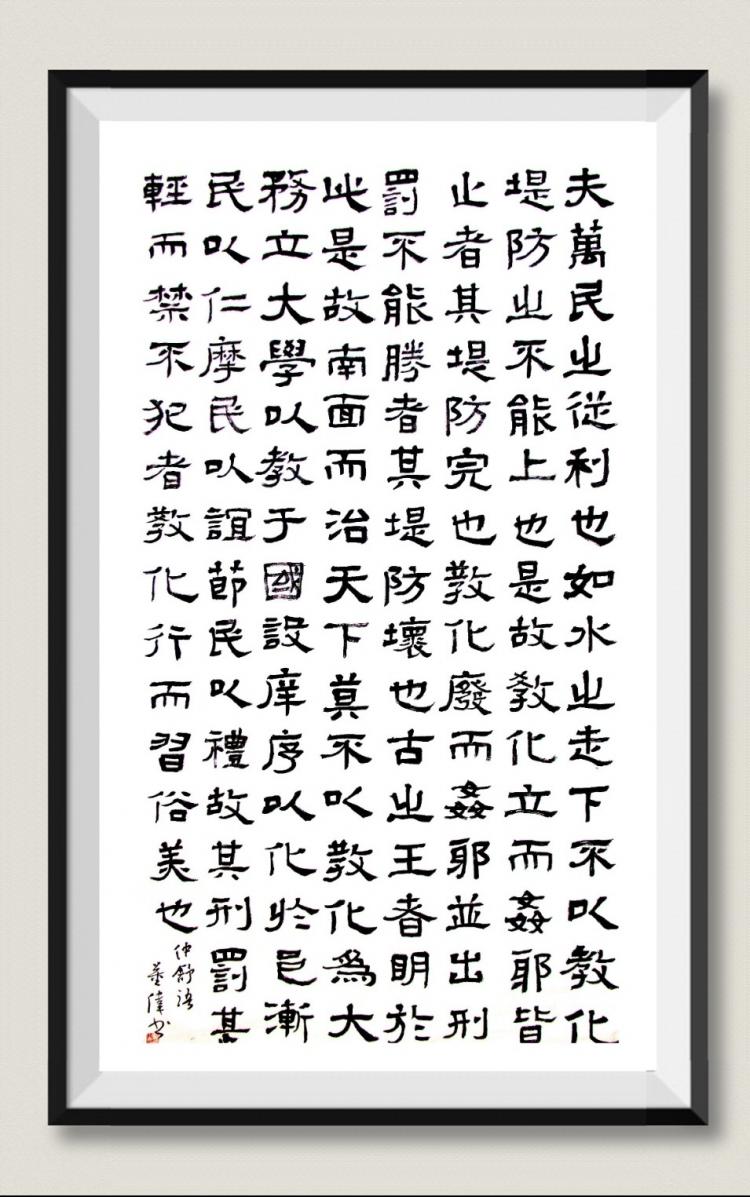 夫萬民之從利也如水之走下不以教化
堤防之不能上也是故教化立而姦耶皆
止者其堤防完也教化廢而姦耶並出刑
罰不能勝者其堤防壞也古之王者明於
此是故南面而治天下莫不以教化為大
務立大學以教于國設庠序以化於邑漸
民以仁摩民以誼節民以禮故其刑罰甚
輕而禁不犯者教化行而習俗美也
仲舒語
偉书